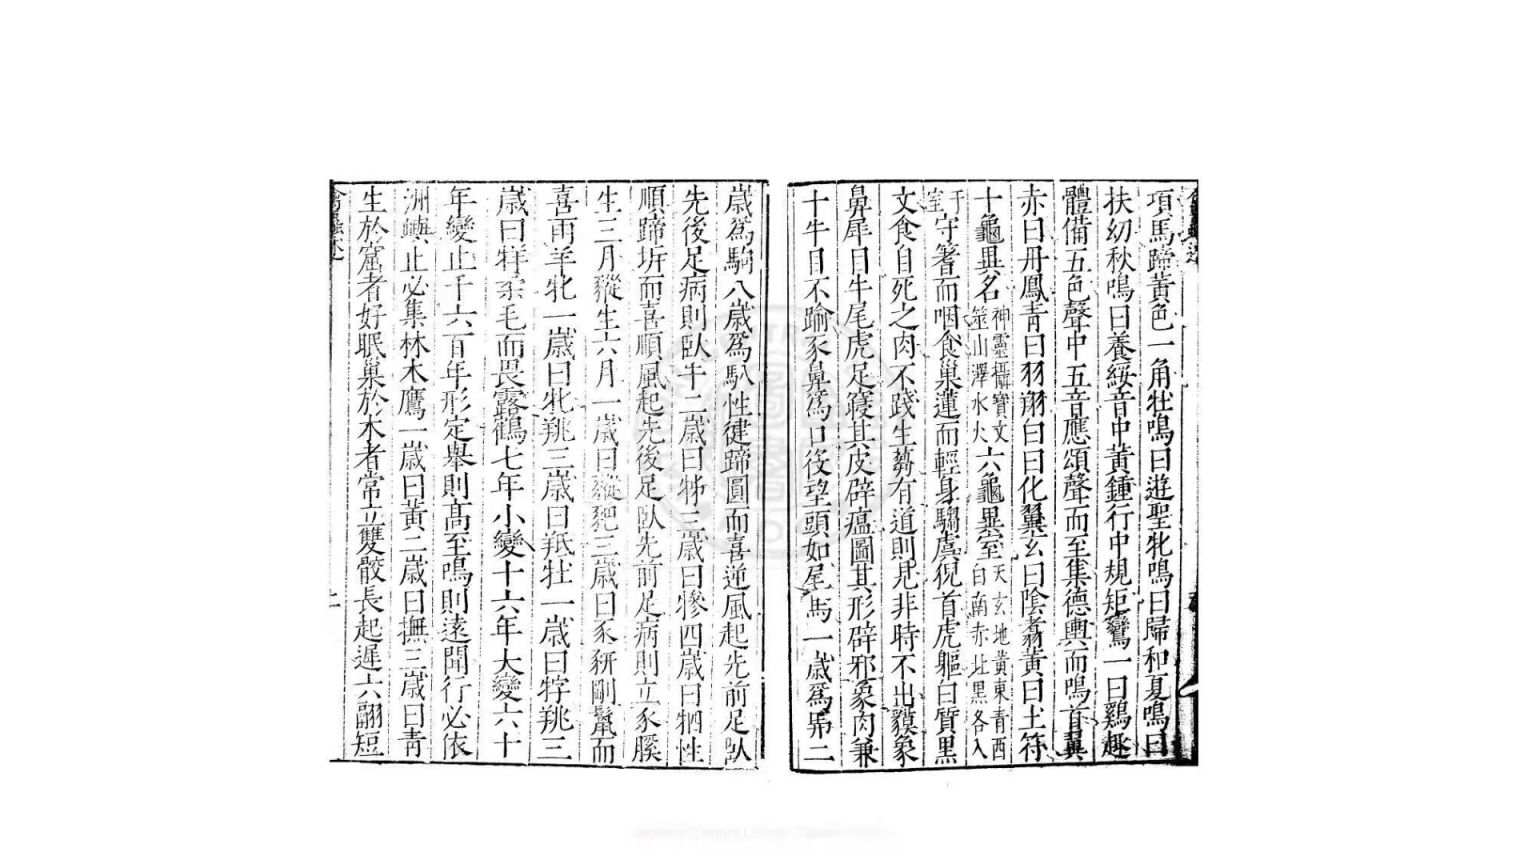 項馬蹄黃色一角牡鳴曰遊聖牝鳴曰歸和夏鳴曰
扶幼秋鳴曰養綏音中黃鍾行中規矩鸞一曰鷄趣
體備五色聲中五音應頌聲而至集德輿而鳴首翼
赤曰丹鳳青曰羽翔白曰化翼玄曰陰翥黃曰土符
十龜異名神靈攝寶文筮山澤水火六龜異室天玄地黃東青西白南赤北黑各入
于室守蓍而咽食巢蓮而輕身騶虞猊首虎軀白質黑
文食自死之肉不踐生蒭有道則見非時不出貘象
鼻犀目牛尾虎足寢其皮辟瘟圖其形辟邪象肉兼
十牛目不踰豕鼻為口役望頭如尾馬一歲為馬二
歲為駒八歲為馱性健蹄圓而喜逆風起先前足臥
先後足病則臥牛二歲曰㸬三歲曰犙四歲曰牭性
順蹄坼而喜順風起先後足臥先前足病則立豕腠
生三月豵生六月一歲曰豵豝三歲曰豕豣剛鬣而
喜雨羊牝一歲曰牝羜三歲曰羝牡一歲曰牸羜三
歲曰牂柔毛而畏露鶴七年小變十六年大變六十
年變止千六百年形定舉則高至鳴則遠聞行必依
洲嶼止必集林木鷹一歲曰黃二歲曰撫三歲曰青
生於窟者好眠巢於木者常立雙骹長起遲六翮短